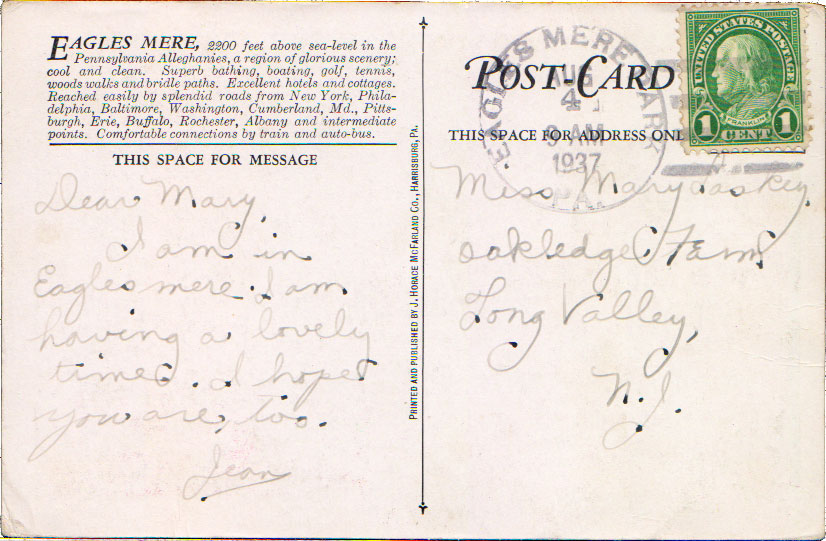 EAGLES MERE, 2200 feet above sea-level in the
Pennsylvania Alleghanies, a region of glorious scenery;
cool and clean. Superb bathing, boating, golf, tennis,
woods walks and bridle paths. Excellent hotels and cottages.
Reached easily by splendid roads from New York, Phila-
delphia, Baltimore, Washington, Cumberland, Md., Pitts-
burgh, Erie, Buffalo, Rochester, Albany and intermediate
points. Comfortable connections by train and auto-bus.
THIS SPACE FOR MESSAGE
Dear Mary,
I am in
Eagles mere. I am
having a lovely
time. I hope
you are, too.
Jean
PRINTED AND PUBLISHED BY J. HORACE MCFARLAND CO., HARRISBURG, PA.
POST-CARD
THIS SPACE FOR ADDRESS ONL
EAGLES MERE PARK
4
9 AM
1937
PA.
UNITED STATES POSTAGE
FRANKLIN
1 CENT 1
Miss Mary
oakledge Farm
Long Valley,
N.J.